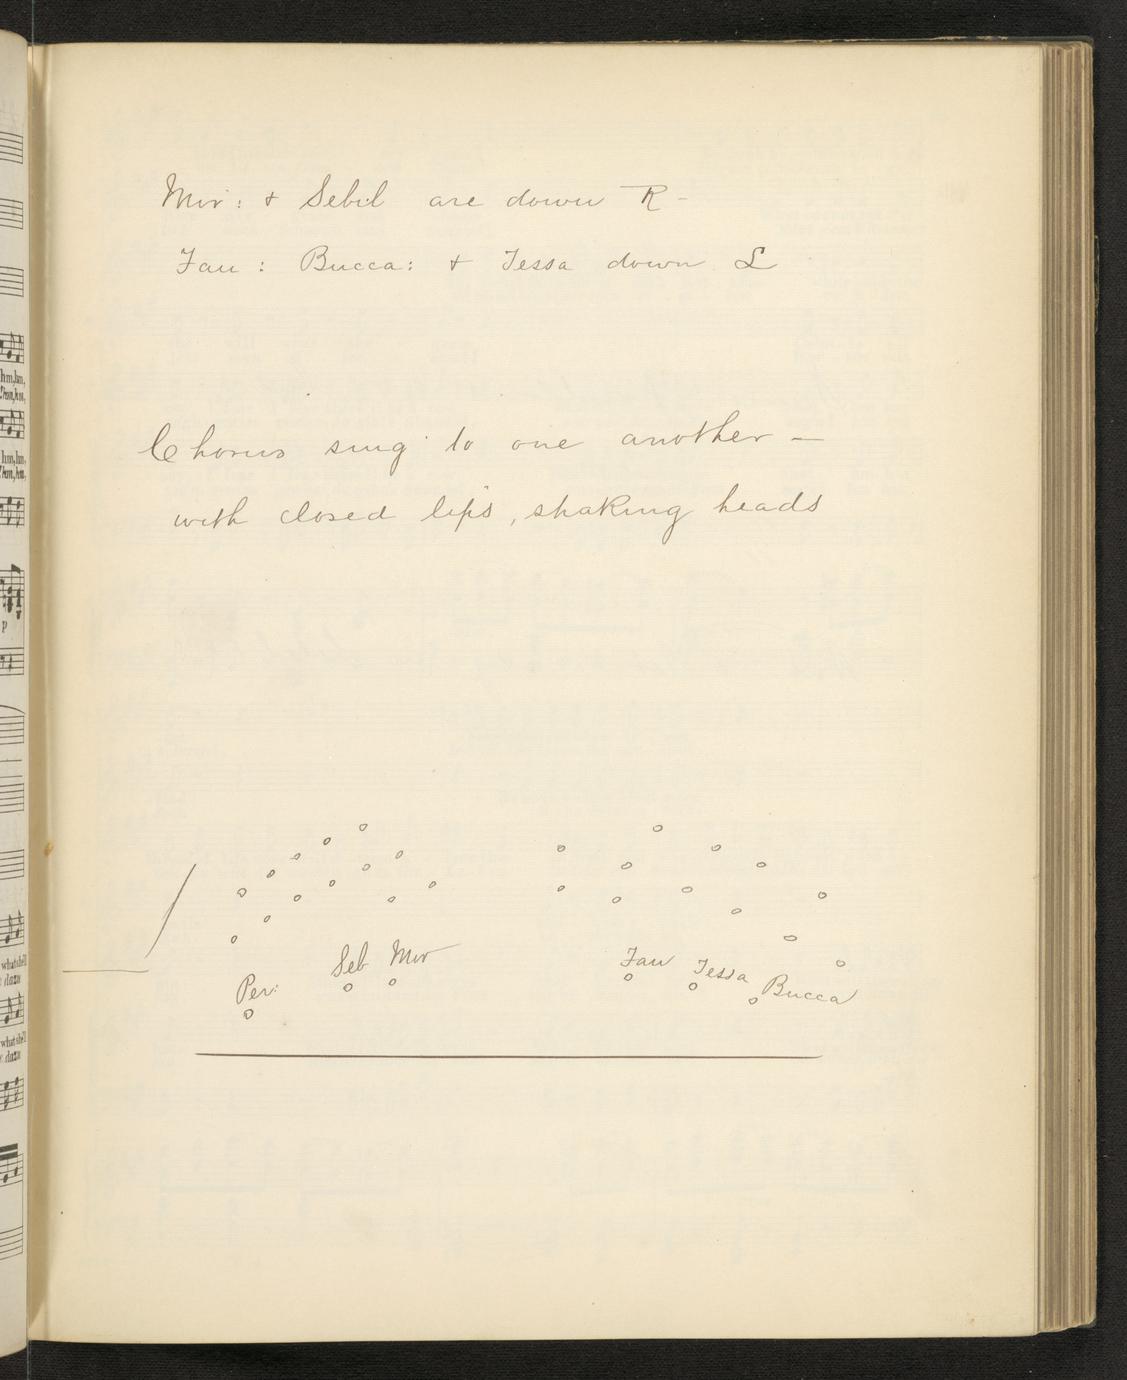 Mir: & Sebil are down R -
Fau: Bucca: & Tessa down L
Chorus sing to one another —
with closed lips, shaking heads
Seb Mir
Fau Tessa Bucca
Per:
hm, hm,
hm, hm,
p
what shall
what shall